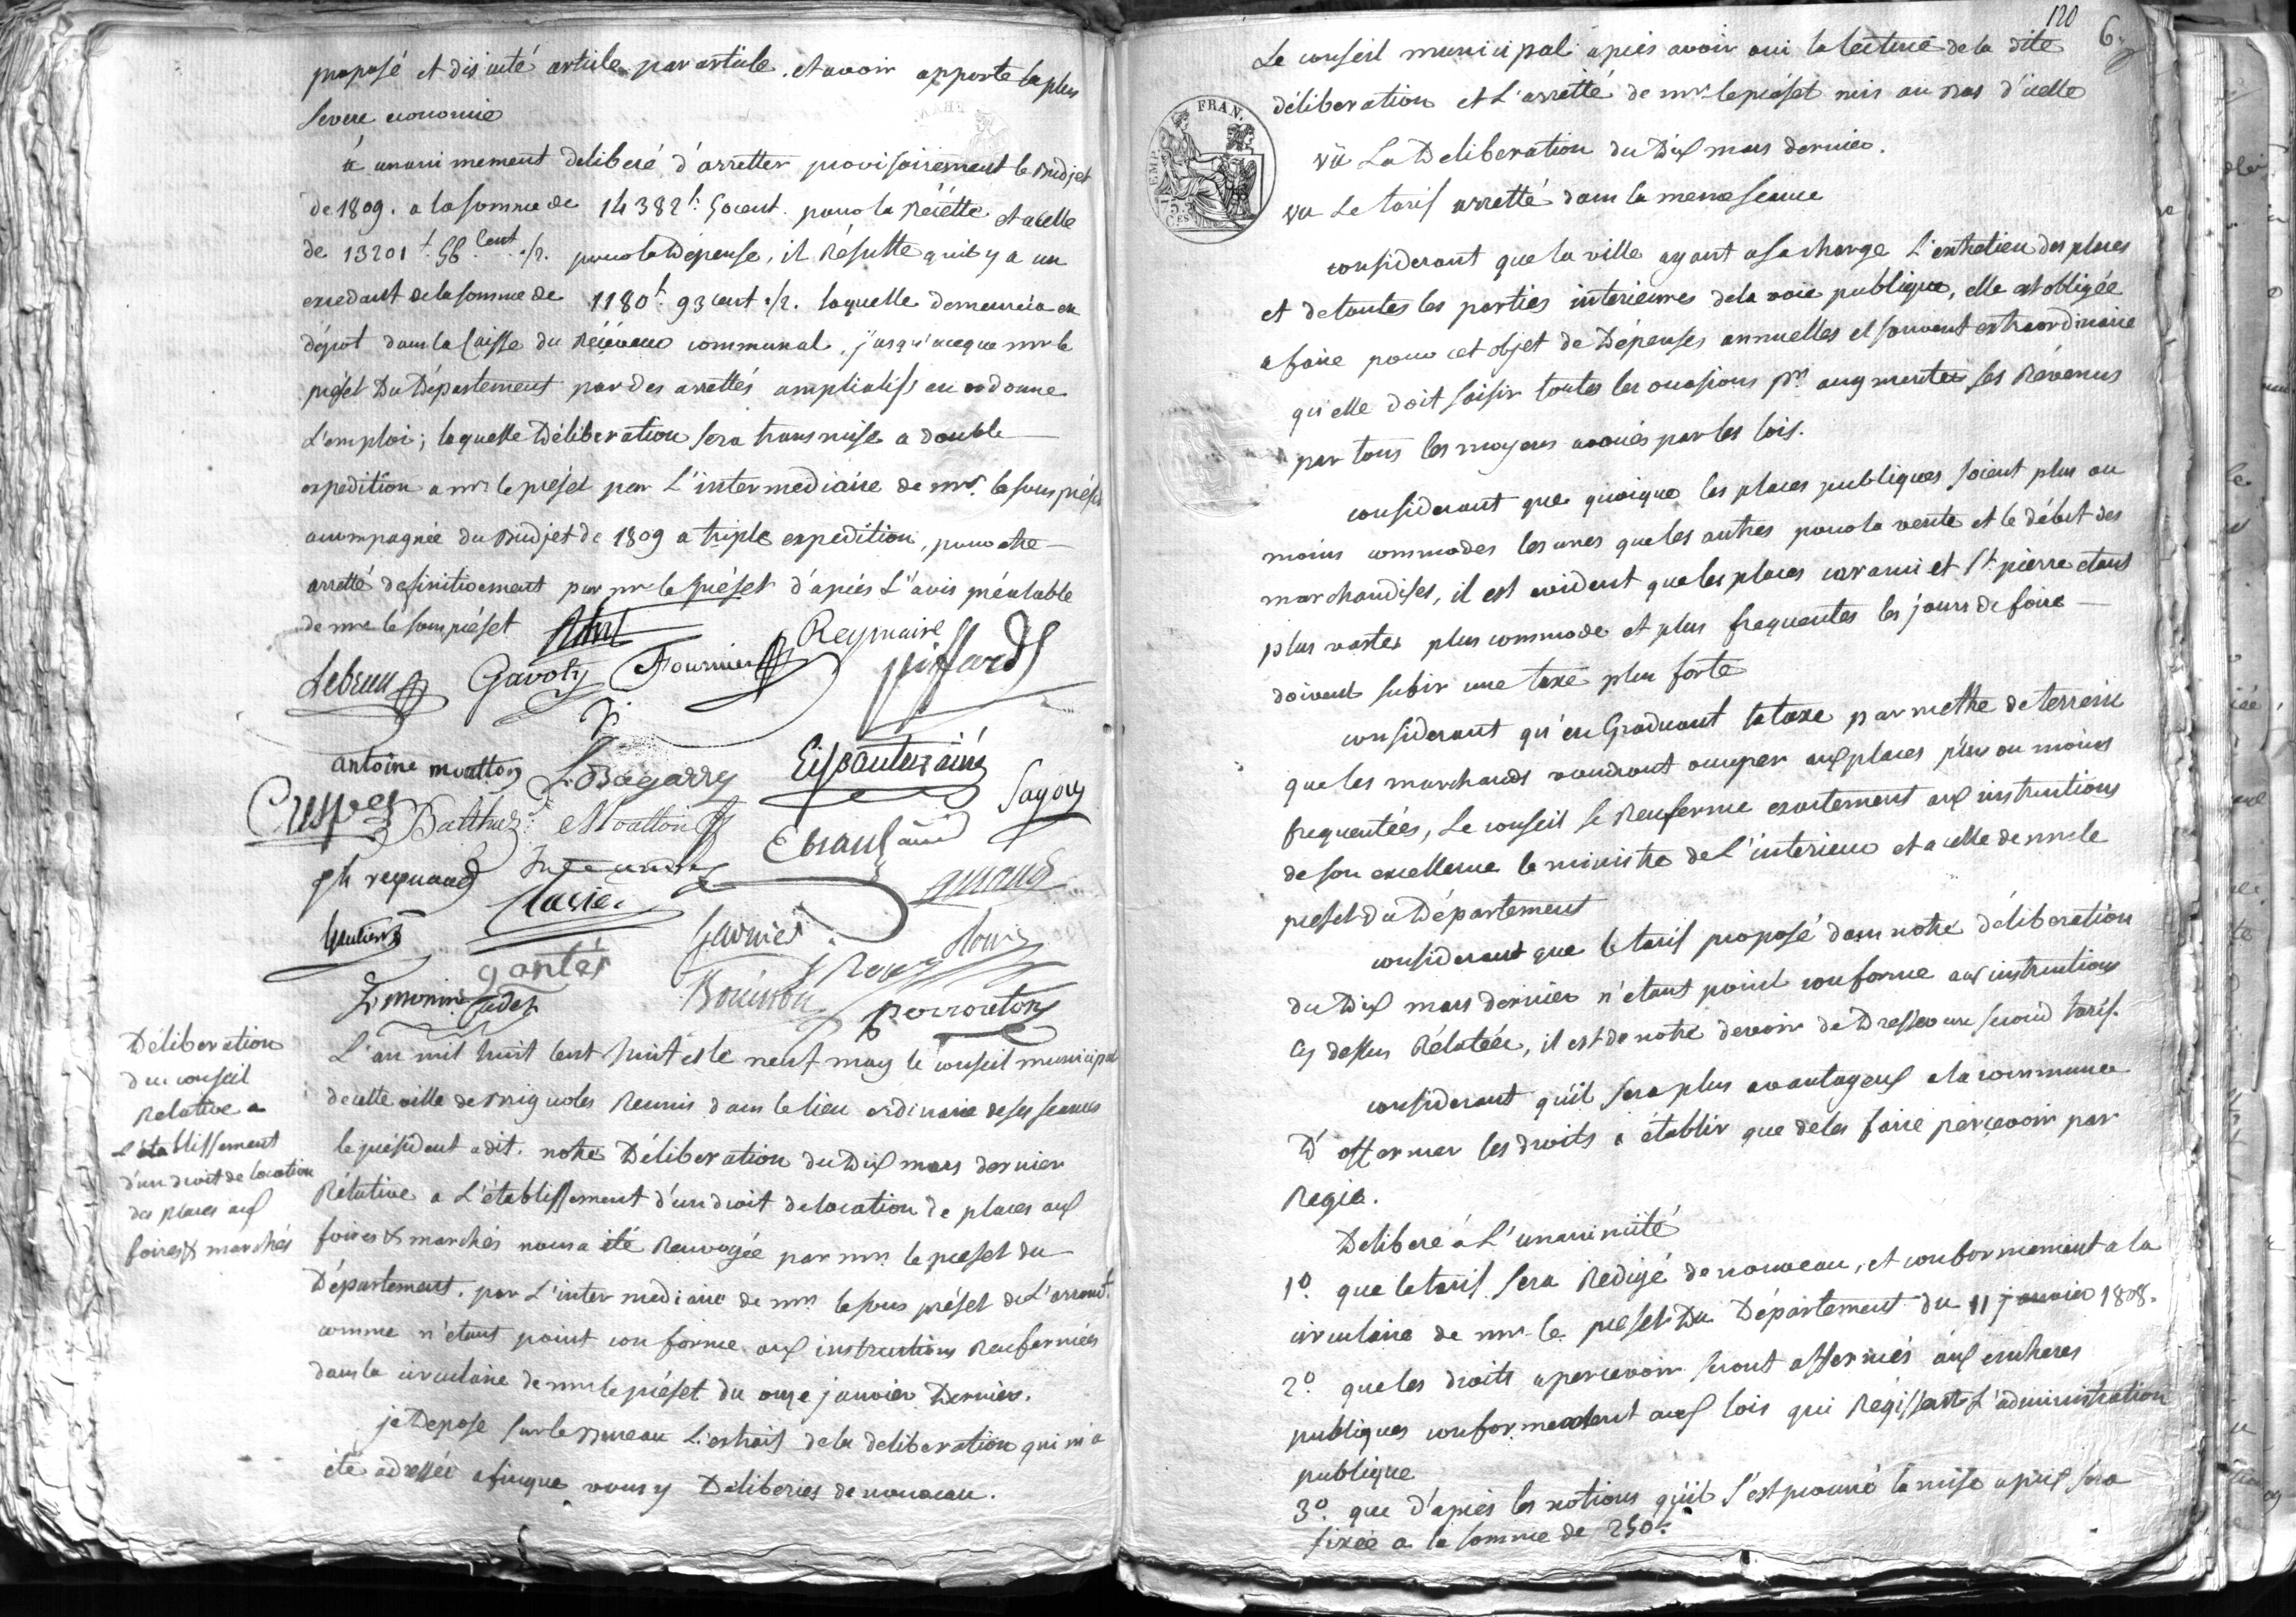 proposé et discuté article par article, et avoir apporté la plus
severe economie
a unanimement deliberé d'arretter provisoirement le Budjet
de 1809. a la somme de 14382 f. 50 cent. pour la Récétte et a celle
de 13201 f. 56 cent ./. pour la Dépense, il Résulte qu'il y a un
excedant de la somme de 1180 f. 93 cent ./. laquelle demeurera en
dépot dans la Caisse du Réçéveur communal, jusqu'aceque mr le
préfet Du Département par des arrettés ampliatifs en ordonne
L'emploi; laquelle Déliberation sera transmise a double
expedition a mr le préfet par L'intermediaire de mr. le sous préfet
accompagnée du Budjet de 1809 a triple expedition, pour etre
arretté definitivement par mr le préfet d'après L'avis préalable
de mr le sous préfet
Reymaire
Lebrun Gavoty Fournier piffard
antoine moutton L. Bagarry Eisbautier ainé
Crespes Balthaz. Moutton Sagouy
ph reynaud Ebrard ainé
Clavier
Gautier Garnier
gantès
L. monin cadet Bouisson perroneton
Déliberation
du conseil
Relative a
L'établissement
d'un droit de location
des places aux
foires & marchés
L'an mil huit cent huit et le neuf may le conseil municipal
de cette ville de Brignoles Reunis dans le lieu ordinaire de ses seances
le président a dit. notre Déliberation du Dix mars dernier
Rélative a L'établissement d'un droit de location de places aux
foires & marchés nous a été Renvoyée par mr. le prefet du
Département, par L'intermediaire de mr. le sous préfet de L'arrondt.
comme n'etant point conforme aux instructions Renfermées
dans la circulaire de mr le préfet du onze janvier Dernier.
je Depose sur le Bureau L'extrait de la deliberation qui m'a
été adressée afinque vous y Déliberiés de nouveau.
120 6.
Le conseil municipal après avoir oui la lecture de la dite
déliberation et L'arretté de mr. le préfet mis au Bas d'icelle
FRAN.
EMP.
75
CES
vû La Deliberation du Dix mars dernier.
vu Le tarif arretté dans la meme seance
considerant que la ville ayant a sa charge L'entretien des places
et de toutes les parties interieures de la voie publique, elle est obligée
a faire pour cet objet de Dépenses annuelles et souvent extraordinaire
qu'elle doit saisir toutes les occasions pr. augmenter ses Révenus
par tous les moyens avoués par les lois.
considerant que quoique les places publiques soient plus ou
moins commodes les unes que les autres pour la vente et le débit des
marchandises, il est evident que les places caramie et St. pierre etant
plus vastes plus commode et plus frequentes les jours de foire
doivent subir une taxe plus forte
considerant qu'en Graduant la taxe par mettre de terrein
que les marchands voudront occuper aux places plus ou moins
frequentées, Le conseil se Renferme exactement aux instructions
de son excellence le ministre de L'interieur et a celle de mr le
prefet du Département
considerant que le tarif proposé dans notre déliberation
du Dix mars dernier n'etant point conforme aux instructions
cy dessus Rélatées, il est de notre devoir de Dresser un second tarif.
considerant qu'il sera plus avantageux a la commune
D'affermer les droits a établir que de les faire percevoir par
Regie.
Deliberé à L'unanimité
1o. que le tarif sera Redigé de nouveau, et conformement a la
circulaire de mr. le prefet Du Département du 11 janvier 1808.
2o. que les droits a percevoir seront affermés aux encheres
publiques conformement aux lois qui Régissent L'administration
publique
3o. que d'après les notions qu'il s'est procuré la mise a prix sera
fixée a la somme de 250 f.